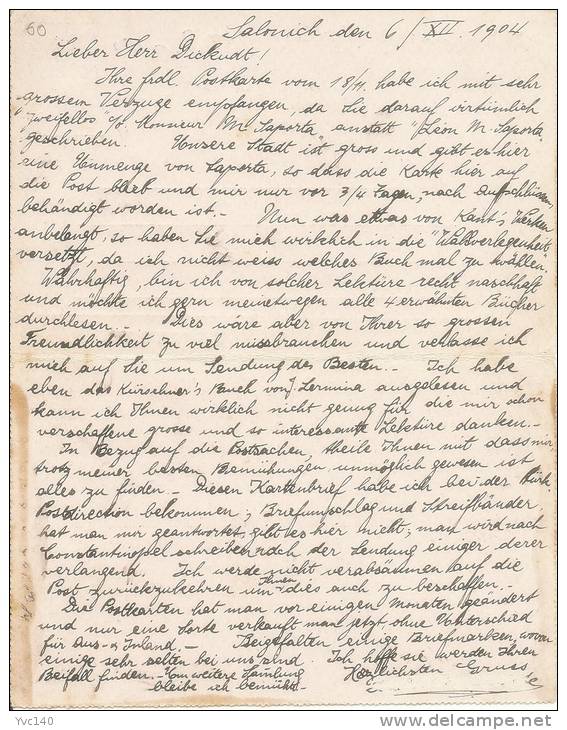 60
Salonich den 6/XII. 1904
Lieber Herr Dickudt!
Ihre frdl. Postkarte vom 18/11. habe ich mit sehr
grossem Verzuge empfangen, da Sie darauf virtümlich
zweifellos c/o. Monsieur M. Saporta, anstatt "Léon M. Saporta
geschrieben. Unsere Stadt ist gross und gibt es hier
eine Unmenge von Saporta, so dass die Karte hier auf
die Post blieb und mir nur vor 3/4 Tagen, nach Aufschlüssen
behändigt worden ist.- Nun was etwas von Kant's Werken
anbelangt, so haben Sie mich wirklich in die "Wahlverlegenheit
versetzt, da ich nicht weiss welches Buch mal zu wählen."
Wahrhaftig, bin ich von solcher Lektüre recht naschhaft
und möchte ich gern meinetwegen alle 4 erwähnten Bücher
durchlesen.- Dies wäre aber von Ihrer so grossen
Freundlichkeit zu viel missbrauchen und verlasse ich
mich auf Sie um Sendung des Besten.- Ich habe
eben das Kürschner's Buch von J. Lermina ausgelesen und
kann ich Ihnen wirklich nicht genug für die mir schon
verschaffene grosse und so interessante Lektüre danken.-
In Bezug auf die Postsachen, theile Ihnen mit dass mir
trotz meiner besten Bemühungen unmöglich gewesen ist
alles zu finden.- Diesen Kartenbrief habe ich bei der Türk.
Postdirection bekommen; Briefumschlag und Streifbänder,
hat man mir geantwortet, gibt es hier nicht; man wird nach
Constantinopel schreiben noch der Sendung einiger derer
verlangend. Ich werde nicht verabsäumen auf die
Post zurückzukehren um Ihnen dies auch zu beschaffen.-
Die Postkarten hat man vor einigen Monaten geändert
und nur eine Sorte verkauft man jetzt ohne Unterschied
für Aus- & Inland.- Beigefalten einige Briefmarken, wovon
einige sehr selten bei uns sind. Ich hoffe sie werden Ihren
Beifall finden.- Um weitere Samlung Herzlichsten Gruss
bleibe ich bemüht.-
Yvc140
www.delcampe.net